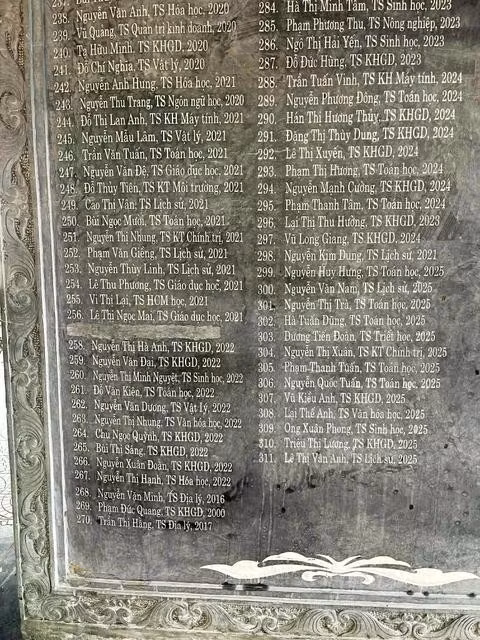 238. Nguyễn Văn Anh, TS Hóa học, 2020
239. Vũ Quang, TS Quản trị kinh doanh, 2020
240. Tạ Hữu Minh, TS KHGD, 2020
241. Đỗ Chí Nghĩa, TS Vật lý, 2020
242. Nguyễn Anh Hưng, TS Hóa học, 2021
243. Nguyễn Thu Trang, TS Ngôn ngữ học, 2020
244. Đỗ Thị Lan Anh, TS KH Máy tính, 2021
245. Nguyễn Mậu Lâm, TS Vật lý, 2021
246. Trần Văn Tuấn, TS Toán học, 2021
247. Nguyễn Văn Đệ, TS Giáo dục học, 2021
248. Đỗ Thủy Tiên, TS KT Môi trường, 2021
249. Cao Thị Vân, TS Lịch sử, 2021
250. Bùi Ngọc Mười, TS Toán học, 2021
251. Nguyễn Thị Nhung, TS KT Chính trị, 2021
252. Phạm Văn Giềng, TS Lịch sử, 2021
253. Nguyễn Thùy Linh, TS Lịch sử, 2021
254. Lê Thu Phương, TS Giáo dục học, 2021
255. Vi Thị Lại, TS HCM học, 2021
256. Lê Thị Ngọc Mai, TS Giáo dục học, 2021
258. Nguyễn Thị Hà Anh, TS KHGD, 2022
259. Nguyễn Văn Đại, TS KHGD, 2022
260. Nguyễn Thị Minh Nguyệt, TS Sinh học, 2022
261. Đỗ Văn Kiên, TS Toán học, 2022
262. Nguyễn Văn Dương, TS Vật lý, 2022
263. Nguyễn Thị Nhung, TS Văn hóa học, 2022
264. Chu Ngọc Quỳnh, TS KHGD, 2022
265. Bùi Thị Sáng, TS KHGD, 2022
266. Nguyễn Xuân Đoàn, TS KHGD, 2022
267. Nguyễn Thị Hạnh, TS Hóa học, 2022
268. Nguyễn Văn Minh, TS Địa lý, 2016
269. Phạm Đức Quang, TS KHGD, 2000
270. Trần Thị Hằng, TS Địa lý, 2017
284. Hà Thị Minh Tâm, TS Sinh học, 2023
285. Phạm Phương Thu, TS Nông nghiệp, 2023
286. Ngô Thị Hải Yến, TS Sinh học, 2023
287. Đỗ Đức Hùng, TS KHGD, 2023
288. Trần Tuấn Vinh, TS KH Máy tính, 2024
289. Nguyễn Phương Đông, TS Toán học, 2024
290. Hán Thị Hương Thủy, TS KHGD, 2024
291. Đặng Thị Thùy Dung, TS KHGD, 2024
292. Lê Thị Xuyến, TS KHGD, 2024
293. Phạm Thị Hương, TS Toán học, 2024
294. Nguyễn Mạnh Cường, TS KHGD, 2024
295. Phạm Thanh Tâm, TS Toán học, 2024
296. Lại Thị Thu Hường, TS KHGD, 2023
297. Vũ Long Giang, TS KHGD, 2024
298. Nguyễn Kim Dung, TS Lịch sử, 2021
299. Nguyễn Huy Hưng, TS Toán học, 2025
300. Nguyễn Văn Nam, TS Lịch sử, 2025
301. Nguyễn Thị Trà, TS Toán học, 2025
302. Hà Tuấn Dũng, TS Toán học, 2025
303. Dương Tiến Đoàn, TS Triết học, 2025
304. Nguyễn Thị Xuân, TS KT Chính trị, 2025
305. Phạm Thanh Tuấn, TS Toán học, 2025
306. Nguyễn Quốc Tuấn, TS Toán học, 2025
307. Vũ Kiều Anh, TS KHGD, 2025
308. Lại Thế Anh, TS Văn hóa học, 2025
309. Ong Xuân Phong, TS Sinh học, 2025
310. Triệu Thị Lương, TS KHGD, 2025
311. Lê Thị Vân Anh, TS Lịch sử, 2025